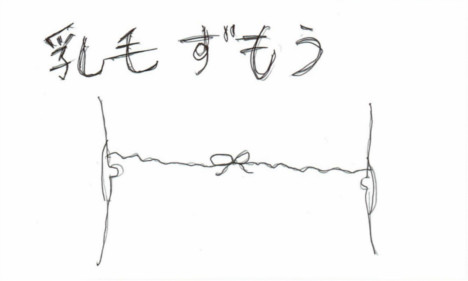 乳毛ずもう